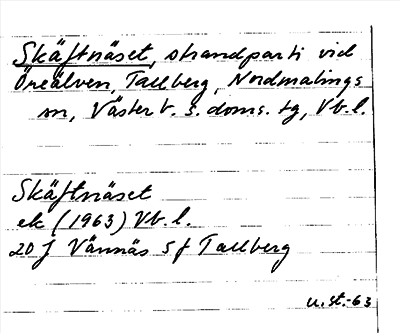 Skäftnäset, strandparti vid
Öreälven, Tallberg, Nordmalings
sn, Västerb. s. doms. tg, Vb. l.
Skäftnäset
ek (1963) Vb. l.
20 J Vännäs 5 f Tallberg
u.st.-63